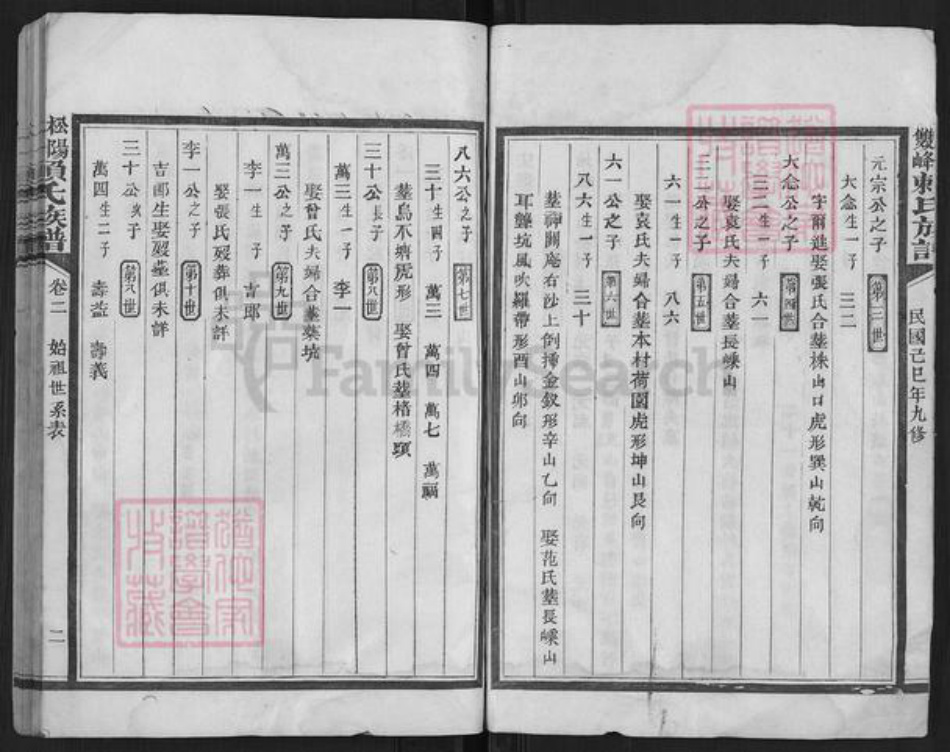 雙峰賴氏族譜
民國己巳年九修
元宗公之子 第三世
大念生一子 三二
字爾進娶張氏合墓株山口虎形巽山乾向
大念公之子 第四世
三二生一子 六一
娶袁氏夫婦合墓長嵊山
三二公之子 第五世
六一生一子 八六
娶袁氏夫婦合墓本村荷園虎形坤山艮向
六一公之子 第六世
八六生一子 三十
墓神關庵右沙上倒揷金釵形辛山乙向 娶范氏墓長嵊山
耳聾坑風吹羅帶形酉山卯向
八六公之子 第七世
三十生四子 萬三 萬四 萬七 萬福
墓烏不塘虎形 娶曾氏墓楮橋頭
三十公長子 第八世
萬三生一子 李一
娶曾氏夫婦合墓葉坑
萬三公之子 第九世
李一生一子 吉郎
娶張氏歿葬俱未詳
李一公之子 第十世
吉郎生娶歿墓俱未詳
三十公次子 第八世
萬四生二子 壽益 壽義
松陽賴氏族譜
卷二 始祖世系表
二
FamilySearch